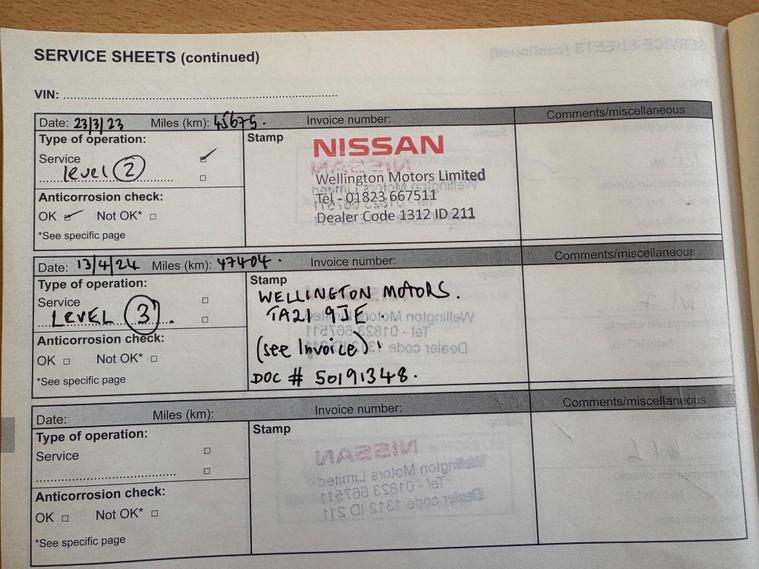 SERVICE SHEETS (continued)
VIN: ........................................................................
Date: 23/3/23 Miles (km): 45675. Invoice number: Comments/miscellaneous
Type of operation: Stamp
Service
Level 2
Anticorrosion check:
OK Not OK*
*See specific page
NISSAN
Wellington Motors Limited
Tel - 01823 667511
Dealer Code 1312 ID 211
Date: 13/4/24 Miles (km): 47404. Invoice number: Comments/miscellaneous
Type of operation: Stamp
Service
LEVEL 3.
Anticorrosion check:
OK Not OK*
*See specific page
WELLINGTON MOTORS.
TA21 9JE.
(see Invoice)!
DOC # 50191348.
Date: Miles (km): Invoice number: Comments/miscellaneous
Type of operation: Stamp
Service
Anticorrosion check:
OK Not OK*
*See specific page
NISSAN
Wellington Motors Limited
Tel - 01823 667511
Dealer code 1312 ID 211